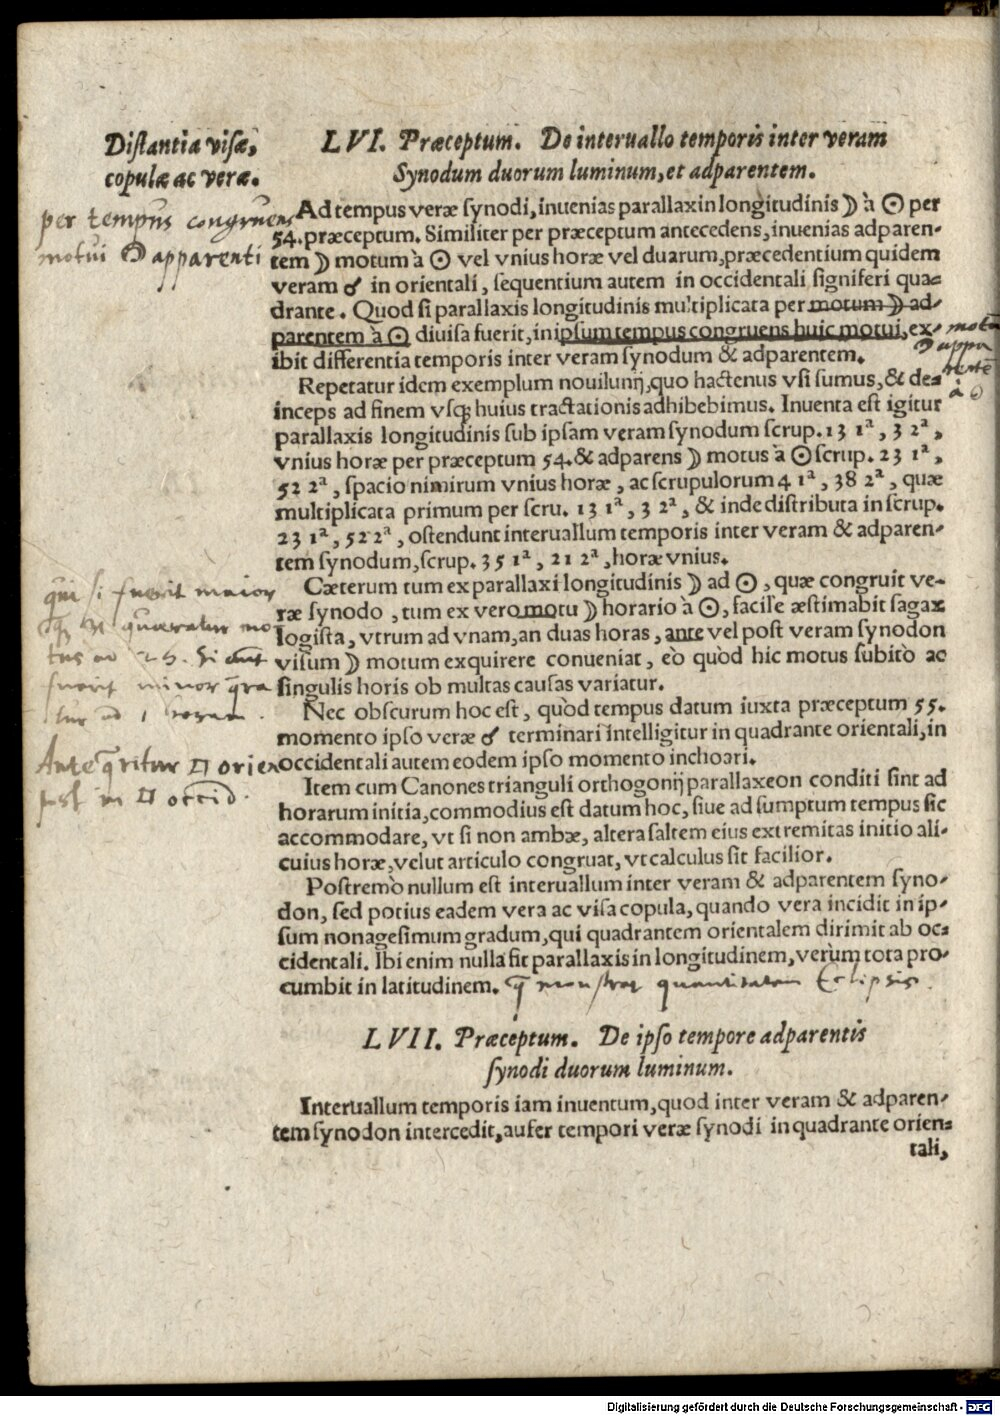 Distantia visæ,
copulæ ac veræ.
per tempus congruens
motui ☽ apparenti
LVI. Præceptum. De interuallo temporis inter veram
Synodum duorum luminum, et adparentem.
Ad tempus veræ synodi, inuenias parallaxin longitudinis ☽ à ☉ per
54. præceptum. Similiter per præceptum antecedens, inuenias adparen-
tem ☽ motum à ☉ vel vnius horæ vel duarum, præcedentium quidem
veram ☌ in orientali, sequentium autem in occidentali signiferi qua-
drante. Quod si parallaxis longitudinis multiplicata per motum ☽ ad-
parentem à ☉ diuisa fuerit, in ipsum tempus congruens huic motui, ex-
ibit differentia temporis inter veram synodum & adparentem.
motū
☽ appa
rentē
à ☉
Repetatur idem exemplum nouilunij, quo hactenus vsi sumus, & de-
inceps ad finem vsq; huius tractationis adhibebimus. Inuenta est igitur
parallaxis longitudinis sub ipsam veram synodum scrup. 13 1ª, 3 2ª,
vnius horæ per præceptum 54. & adparens ☽ motus à ☉ scrup. 23 1ª,
52 2ª, spacio nimirum vnius horæ, ac scrupulorum 4 1ª, 38 2ª, quæ
multiplicata primum per scru. 13 1ª, 3 2ª, & inde distributa in scrup.
23 1ª, 52 2ª, ostendunt interuallum temporis inter veram & adparen-
tem synodum, scrup. 35 1ª, 21 2ª, horæ vnius.
Cæterum tum ex parallaxi longitudinis ☽ ad ☉, quæ congruit ve-
ræ synodo, tum ex vero motu ☽ horario à ☉, facile æstimabit sagax
logista, vtrum ad vnam, an duas horas, ante vel post veram synodon
visum ☽ motum exquirere conueniat, eò quòd hic motus subitò ac
singulis horis ob multas causas variatur.
qui si fuerit maior
quæratur mo
tus ad 2 h. si aut
fuerit minor
tur ad 1 horam.
Nec obscurum hoc est, quòd tempus datum iuxta præceptum 55.
momento ipso veræ ☌ terminari intelligitur in quadrante orientali, in
occidentali autem eodem ipso momento inchoari.
Ante qritur □ orien
post in □ occid.
Item cum Canones trianguli orthogonij parallaxeon conditi sint ad
horarum initia, commodius est datum hoc, siue ad sumptum tempus sic
accommodare, vt si non ambæ, altera saltem eius extremitas initio ali-
cuius horæ, velut articulo congruat, vt calculus sit facilior.
Postremò nullum est interuallum inter veram & adparentem syno-
don, sed potius eadem vera ac visa copula, quando vera incidit in ip-
sum nonagesimum gradum, qui quadrantem orientalem dirimit ab oc-
cidentali. Ibi enim nulla fit parallaxis in longitudinem, verùm tota pro-
cumbit in latitudinem. q monstrat quantitatem Eclipsis.
LVII. Præceptum. De ipso tempore adparentis
synodi duorum luminum.
Interuallum temporis iam inuentum, quod inter veram & adparen-
tem synodon intercedit, aufer tempori veræ synodi in quadrante orien-
tali,
Digitalisierung gefördert durch die Deutsche Forschungsgemeinschaft - DFG